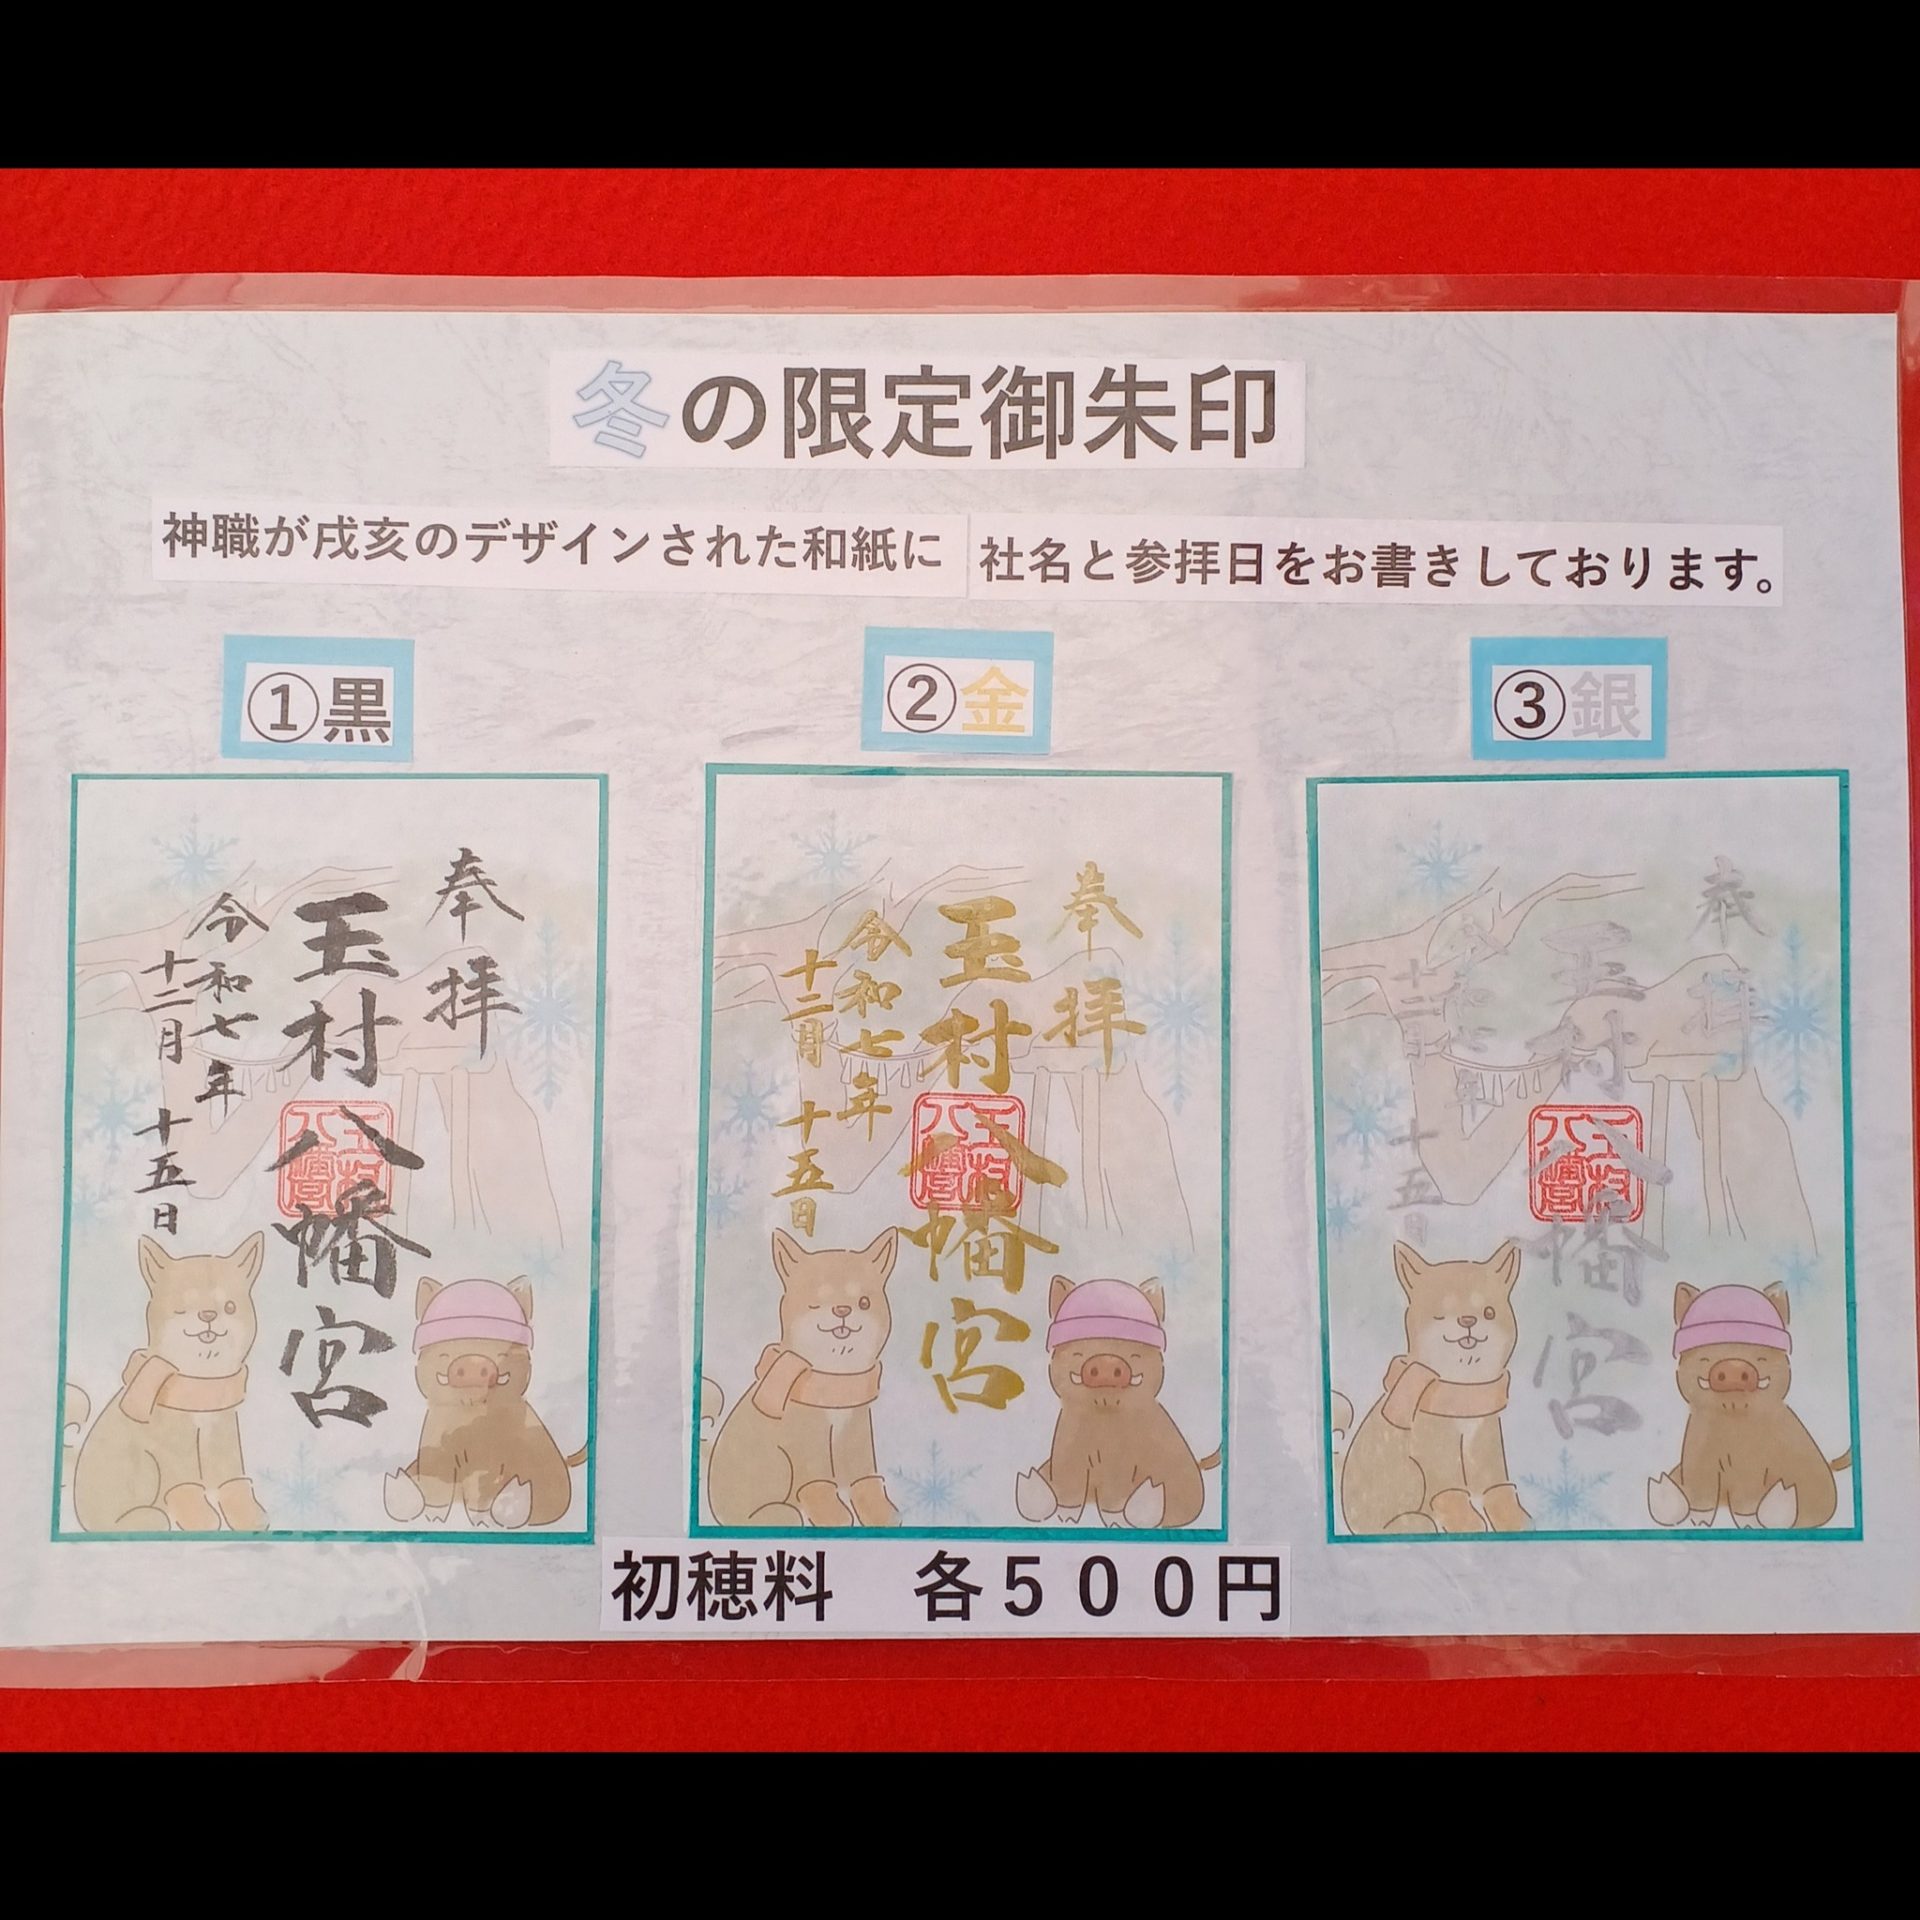 冬の限定御朱印
神職が戌亥のデザインされた和紙に 社名と参拝日をお書きしております。
①黒
②金
③銀
奉拝
玉村八幡宮
令和七年
十二月十五日
玉村八幡宮
奉拝
玉村八幡宮
令和七年
十二月十五日
玉村八幡宮
奉拝
玉村八幡宮
令和七年
十二月十五日
玉村八幡宮
初穂料 各５００円